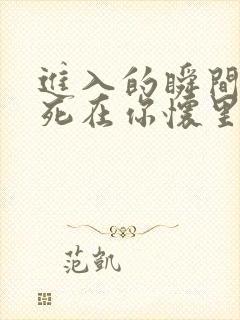 進入的瞬間
死在你懷里
范凱